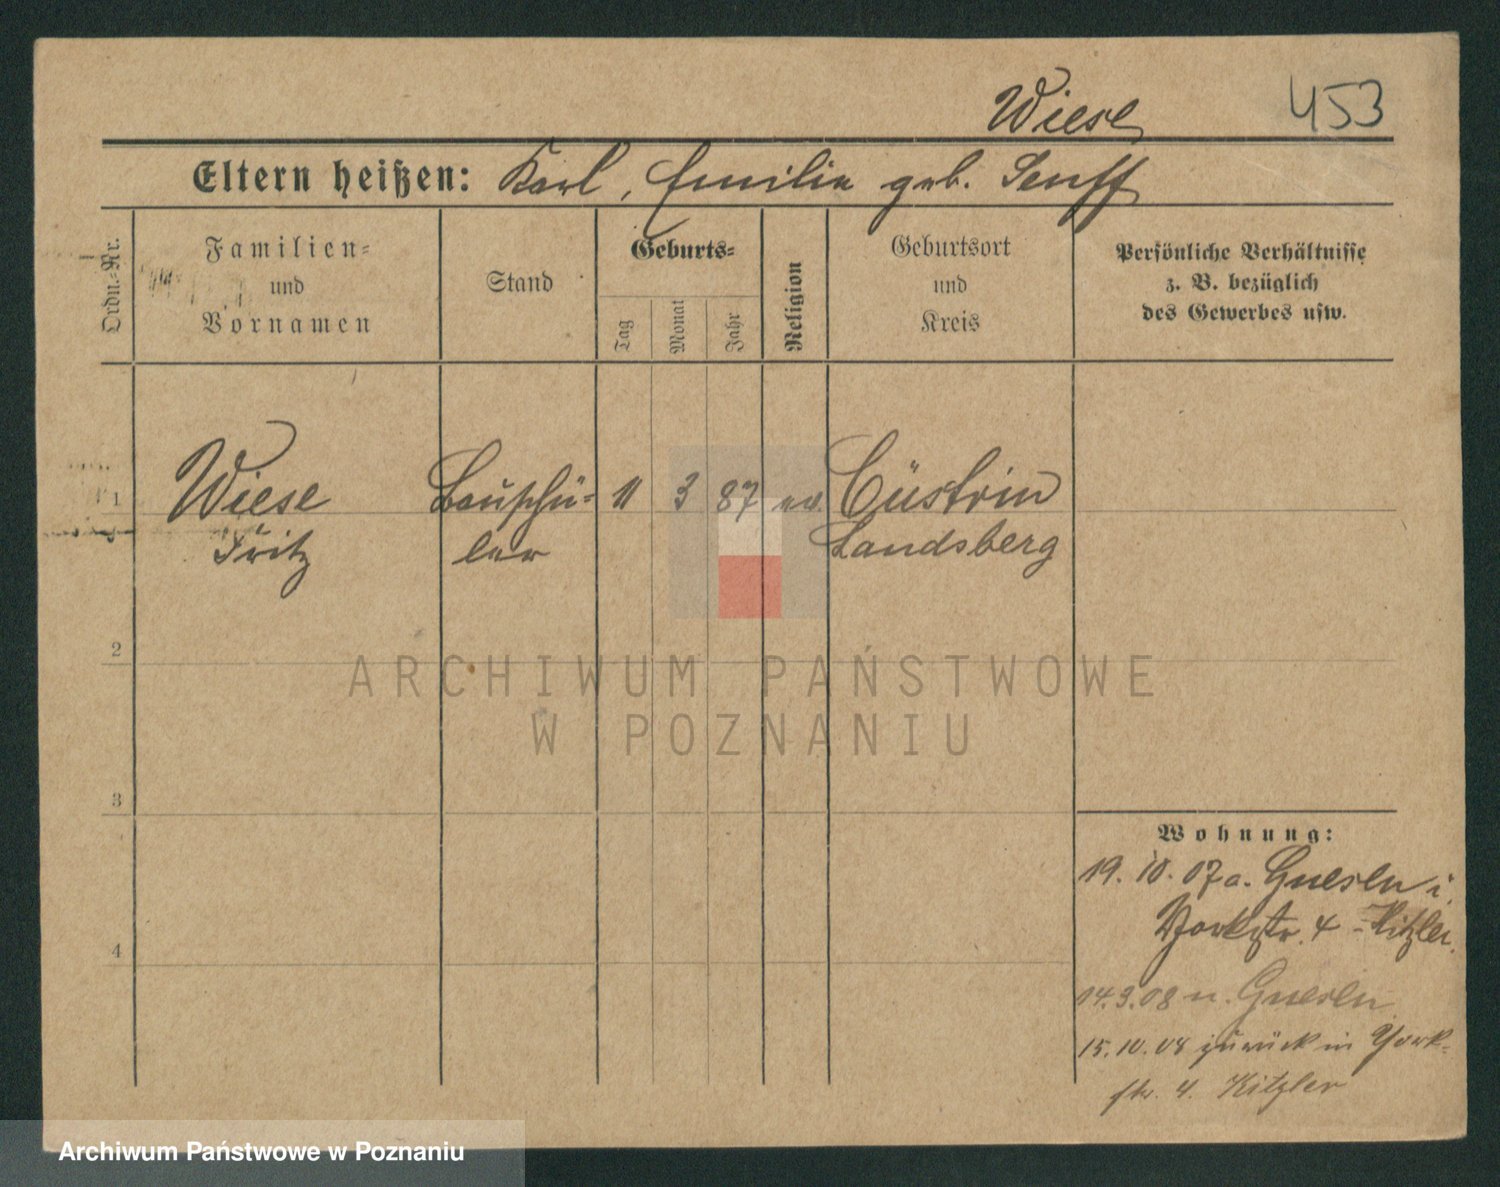 Wiese 453
Eltern heißen: Karl, Emilie geb. Senff
Ordn.-Nr.
Familien-
und
Vornamen
Stand
Geburts-
Tag
Monat
Jahr
Religion
Geburtsort
und
Kreis
Persönliche Verhältnisse
z. B. bezüglich
des Gewerbes usw.
1 Wiese Bauschü- 11 3 87 ev. Cüstrin
Fritz ler Landsberg
2
3
4
Wohnung:
19. 10. 07 a. Gnesen i.
Yorkstr. 4 - Kitzler.
14.3.08 n. Gnesen
15.10.08 zurück in York-
str. 4. Kitzler
ARCHIWUM PAŃSTWOWE
W POZNANIU
Archiwum Państwowe w Poznaniu